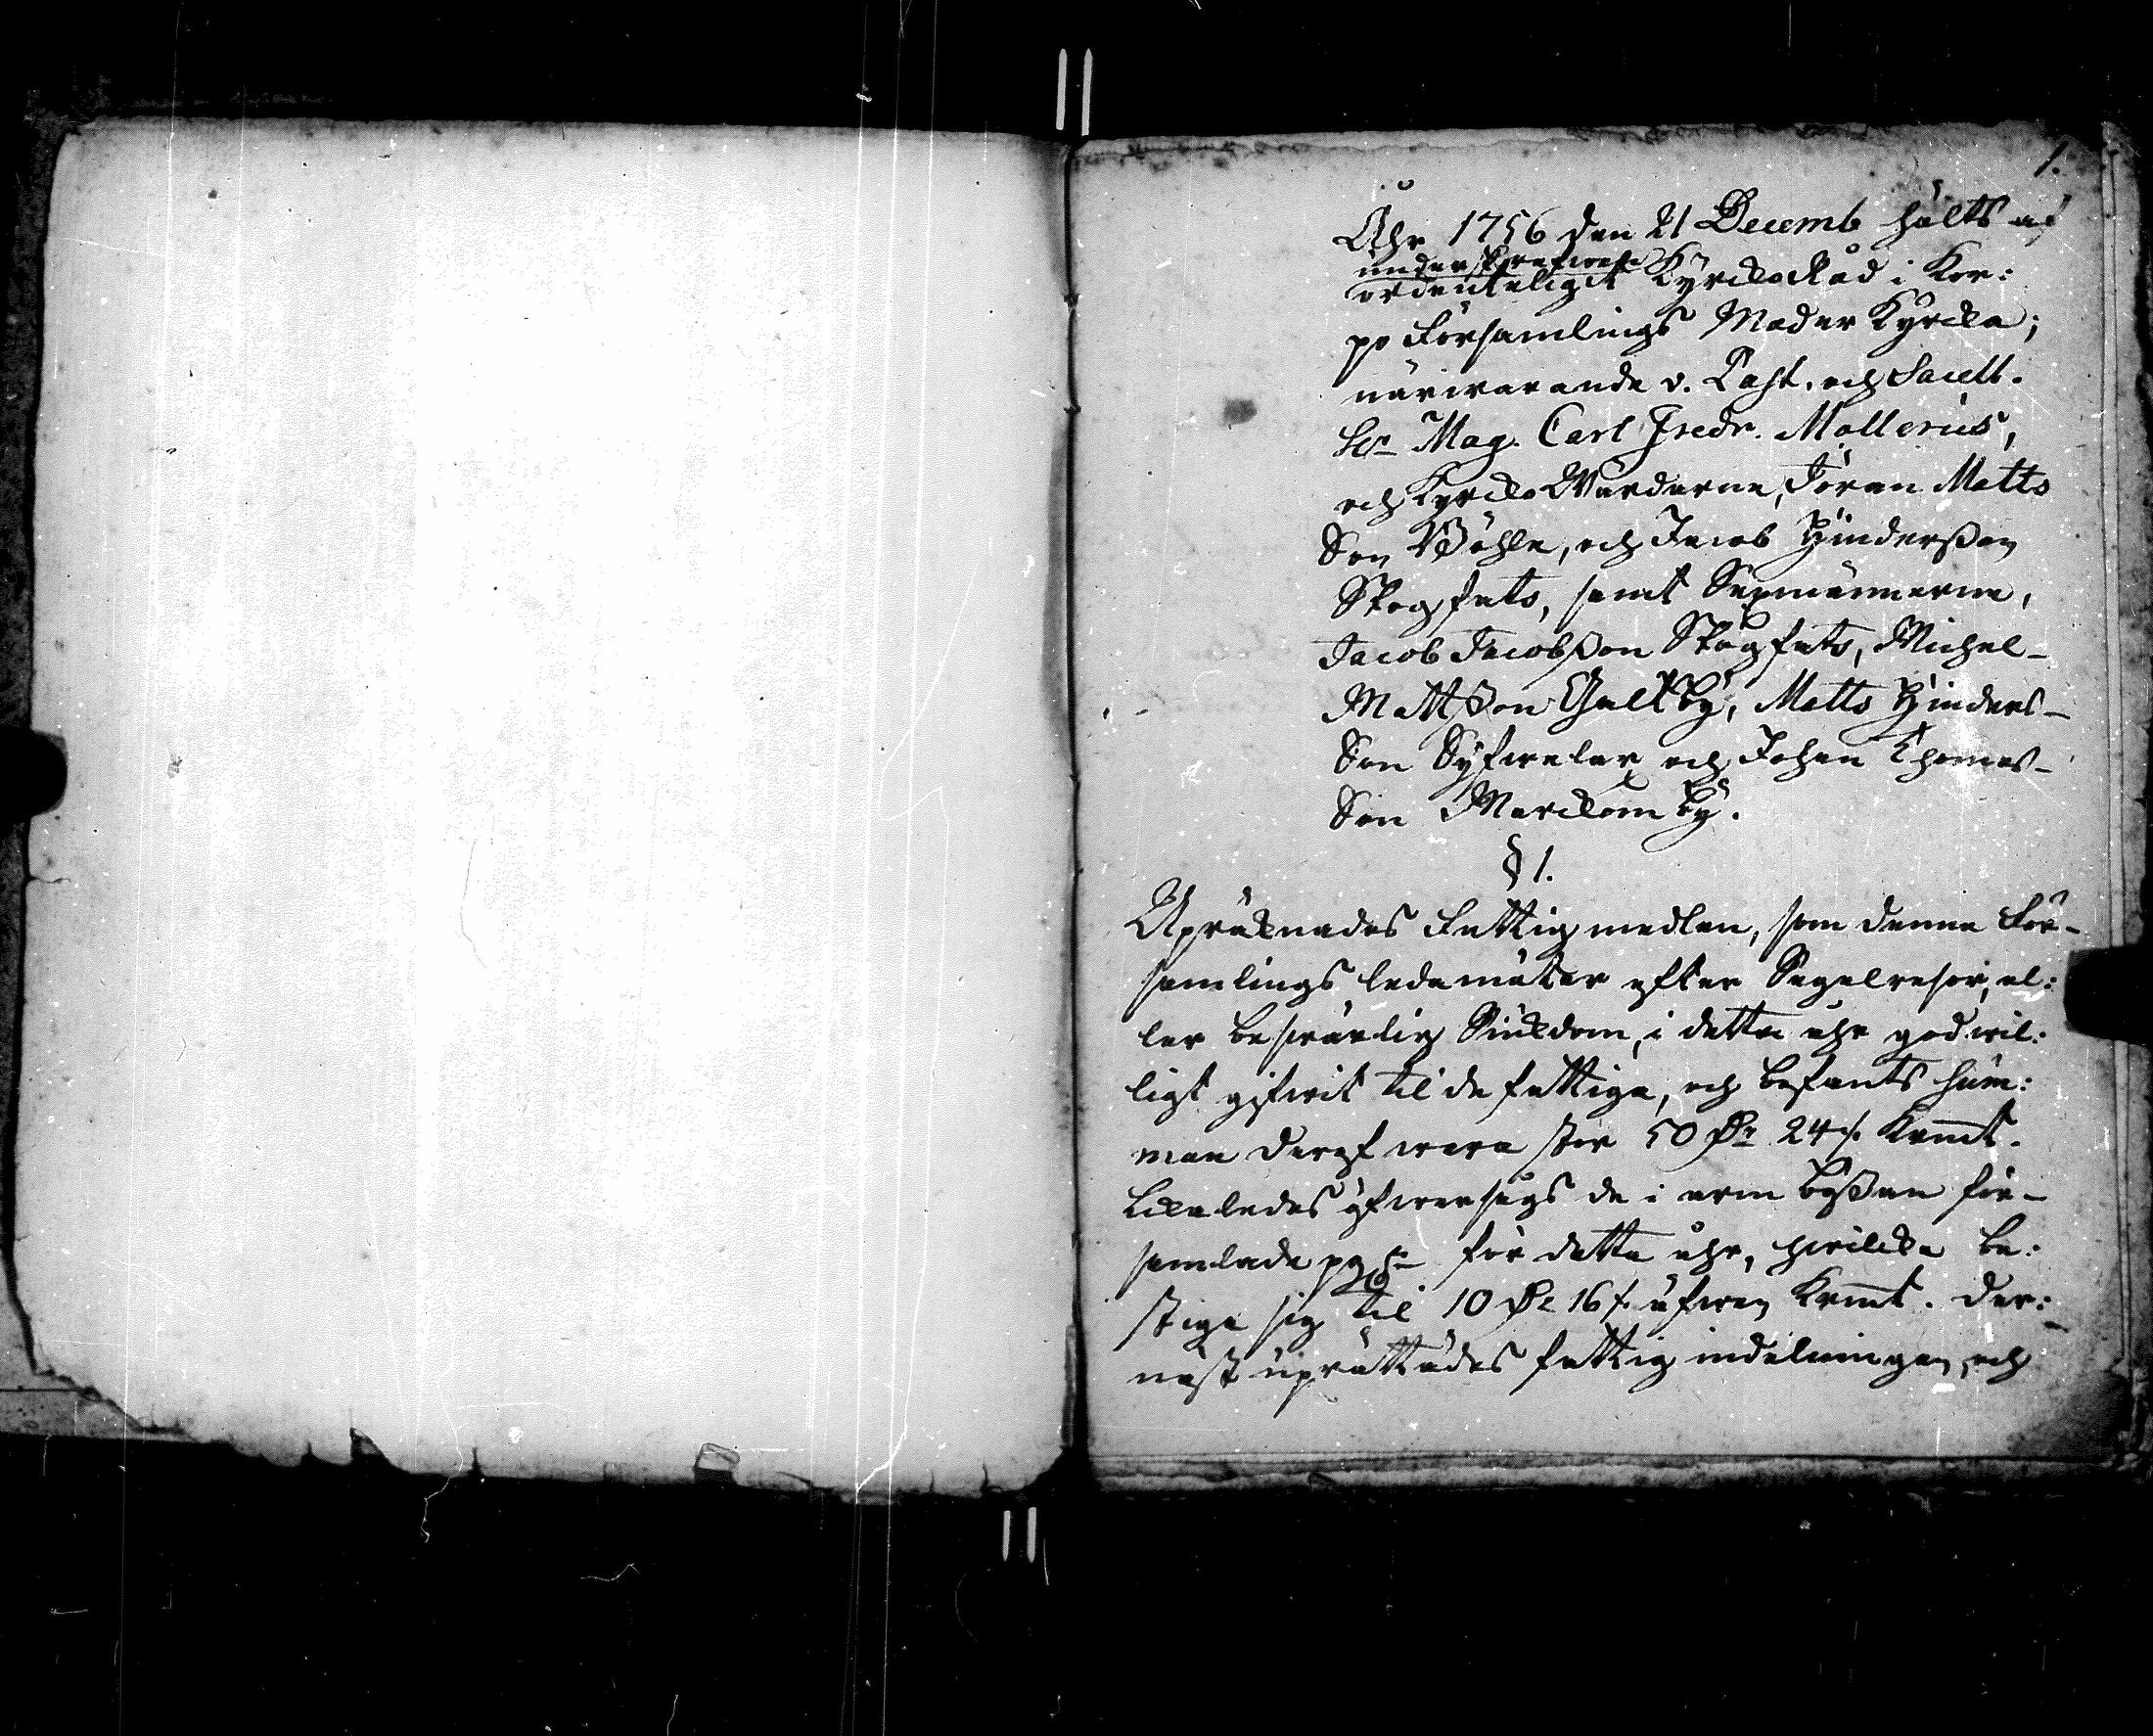 1.
Åhr 1756 den 21 Decemb hölts af
underskrefwen
ordenteligit KyrckoRåd i Kor:
po Församlings Moder Kyrcka;
närwarande v. Past. och Sacell.
Hr Mag. Carl Fredr. Mollerius,
och KyrckoWärdarne, Jöran Matts
Son Wåhle, och Jacob Hinderßon
Skogfats, samt Sexmännerne,
Jacob Jacobßon Skogfats, Michel-
Mattßon Galtby, Matts Hinders-
Son Syfwelax och Johan Thomas-
Son Marckomby.
§ 1.
Upräknades Fattigmedlen, som denne För-
samlings ledamöter efter Segelresor, el:
ler beswärlig Siukdom, i detta åhr godwil:
ligt gifwit til de fattiga, och befants sum:
man deraf wara stor 50 Dr 24 /. Kmt.
Likaledes öfwersågs de i arm bößan för-
samlade pgr för detta åhr, hwilcka be:
stiga sig til 10 Dr 16 /. äfwen Kmt. Der:
näst uprättades fattig indelningen, och